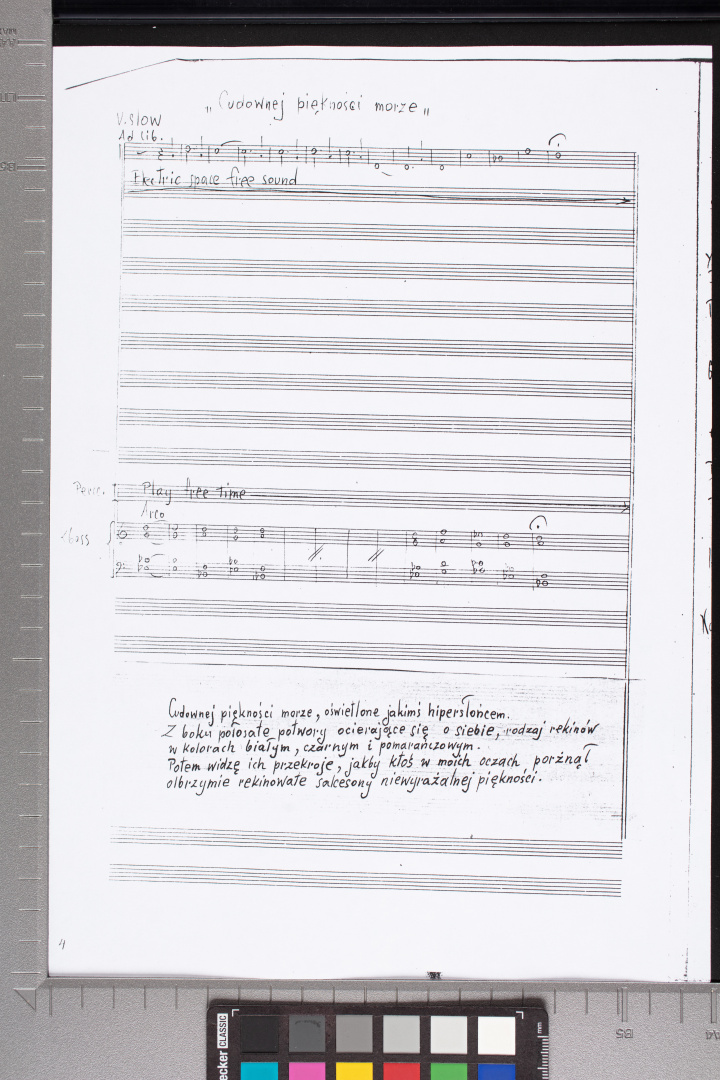 „Cudownej piękności morze„
V. SLOW
Ad lib.
Electric space free sound
Perc.
Play free time
Arco
Cudownej piękności morze, oświetlone jakimś hipersłońcem.
Z boku polosate potwory ocierające się o siebie, rodzaj rekinów
w kolorach białym, czarnym i pomarańczowym.
Potem widzę ich przekroje, jakby ktoś w moich oczach porżnął
olbrzymie rekinowate salcesony niewyrażalnej piękności.
4
CLASSIC
mm
B5
A4